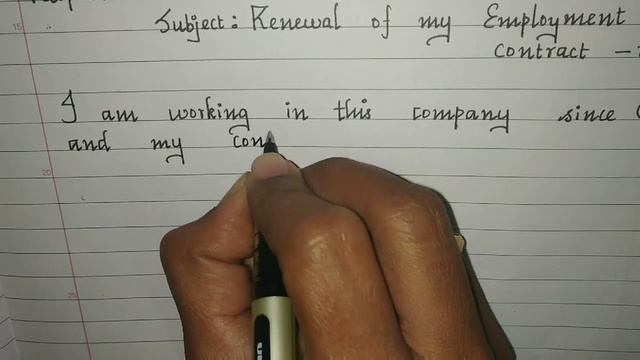 Subject: Renewal of my Employment
contract -
I am working in this company since
and my con